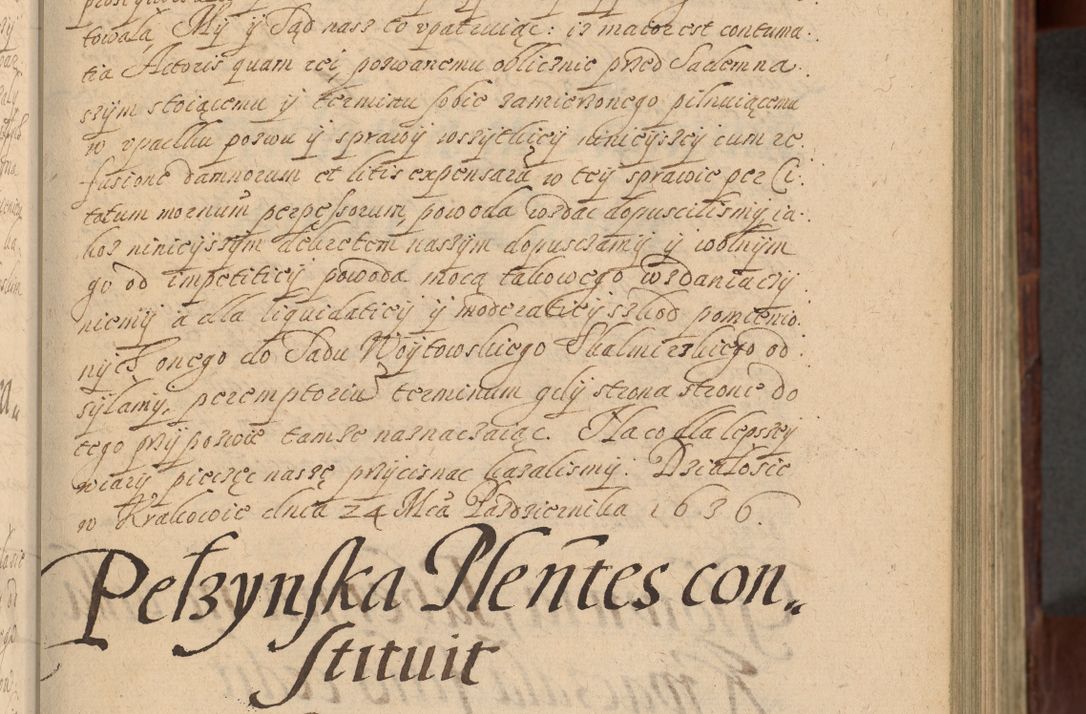 towała, My y Sąd nasz to vpatruiąc: iz maior est contuma
tia Actoris quam rei, pozwanemu oblicznie przed Sadem na
szym stoiącemu y terminu sobie zamierzonego pilnuiącemu
w vpadku pozwu y sprawy wszytkiey ninieyszey cum re
fusione damnorum et litis expensarũ w tey sprawie per Ci
totum mornum perpessorum, powoda wzdac dopuscilismy, ia
koz ninieyszym dekretem naszym dopusczamy y wolnym
go od impetitiey powoda mocą takowego wzdania czy
niemy a dla liquidatiey y moderatiey szkod pomienio
nych onego do Sadu Woytowskiego Skalmirskiego od
syłamy, peremptoriũ terminum gdy strona stronie do
tego przypozwie tamze naznaczaiąc. Na co dla lepszey
wiary pieczęc naszę przycisnac kazalismy. Działosie
w Krakowie dnia 24 Mca Pazdziernika 1636.
Pełzynska Plentes con„
stituit